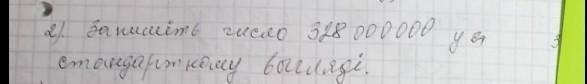 2). Запишіть число 328 000000 у
стандартному вигляді.